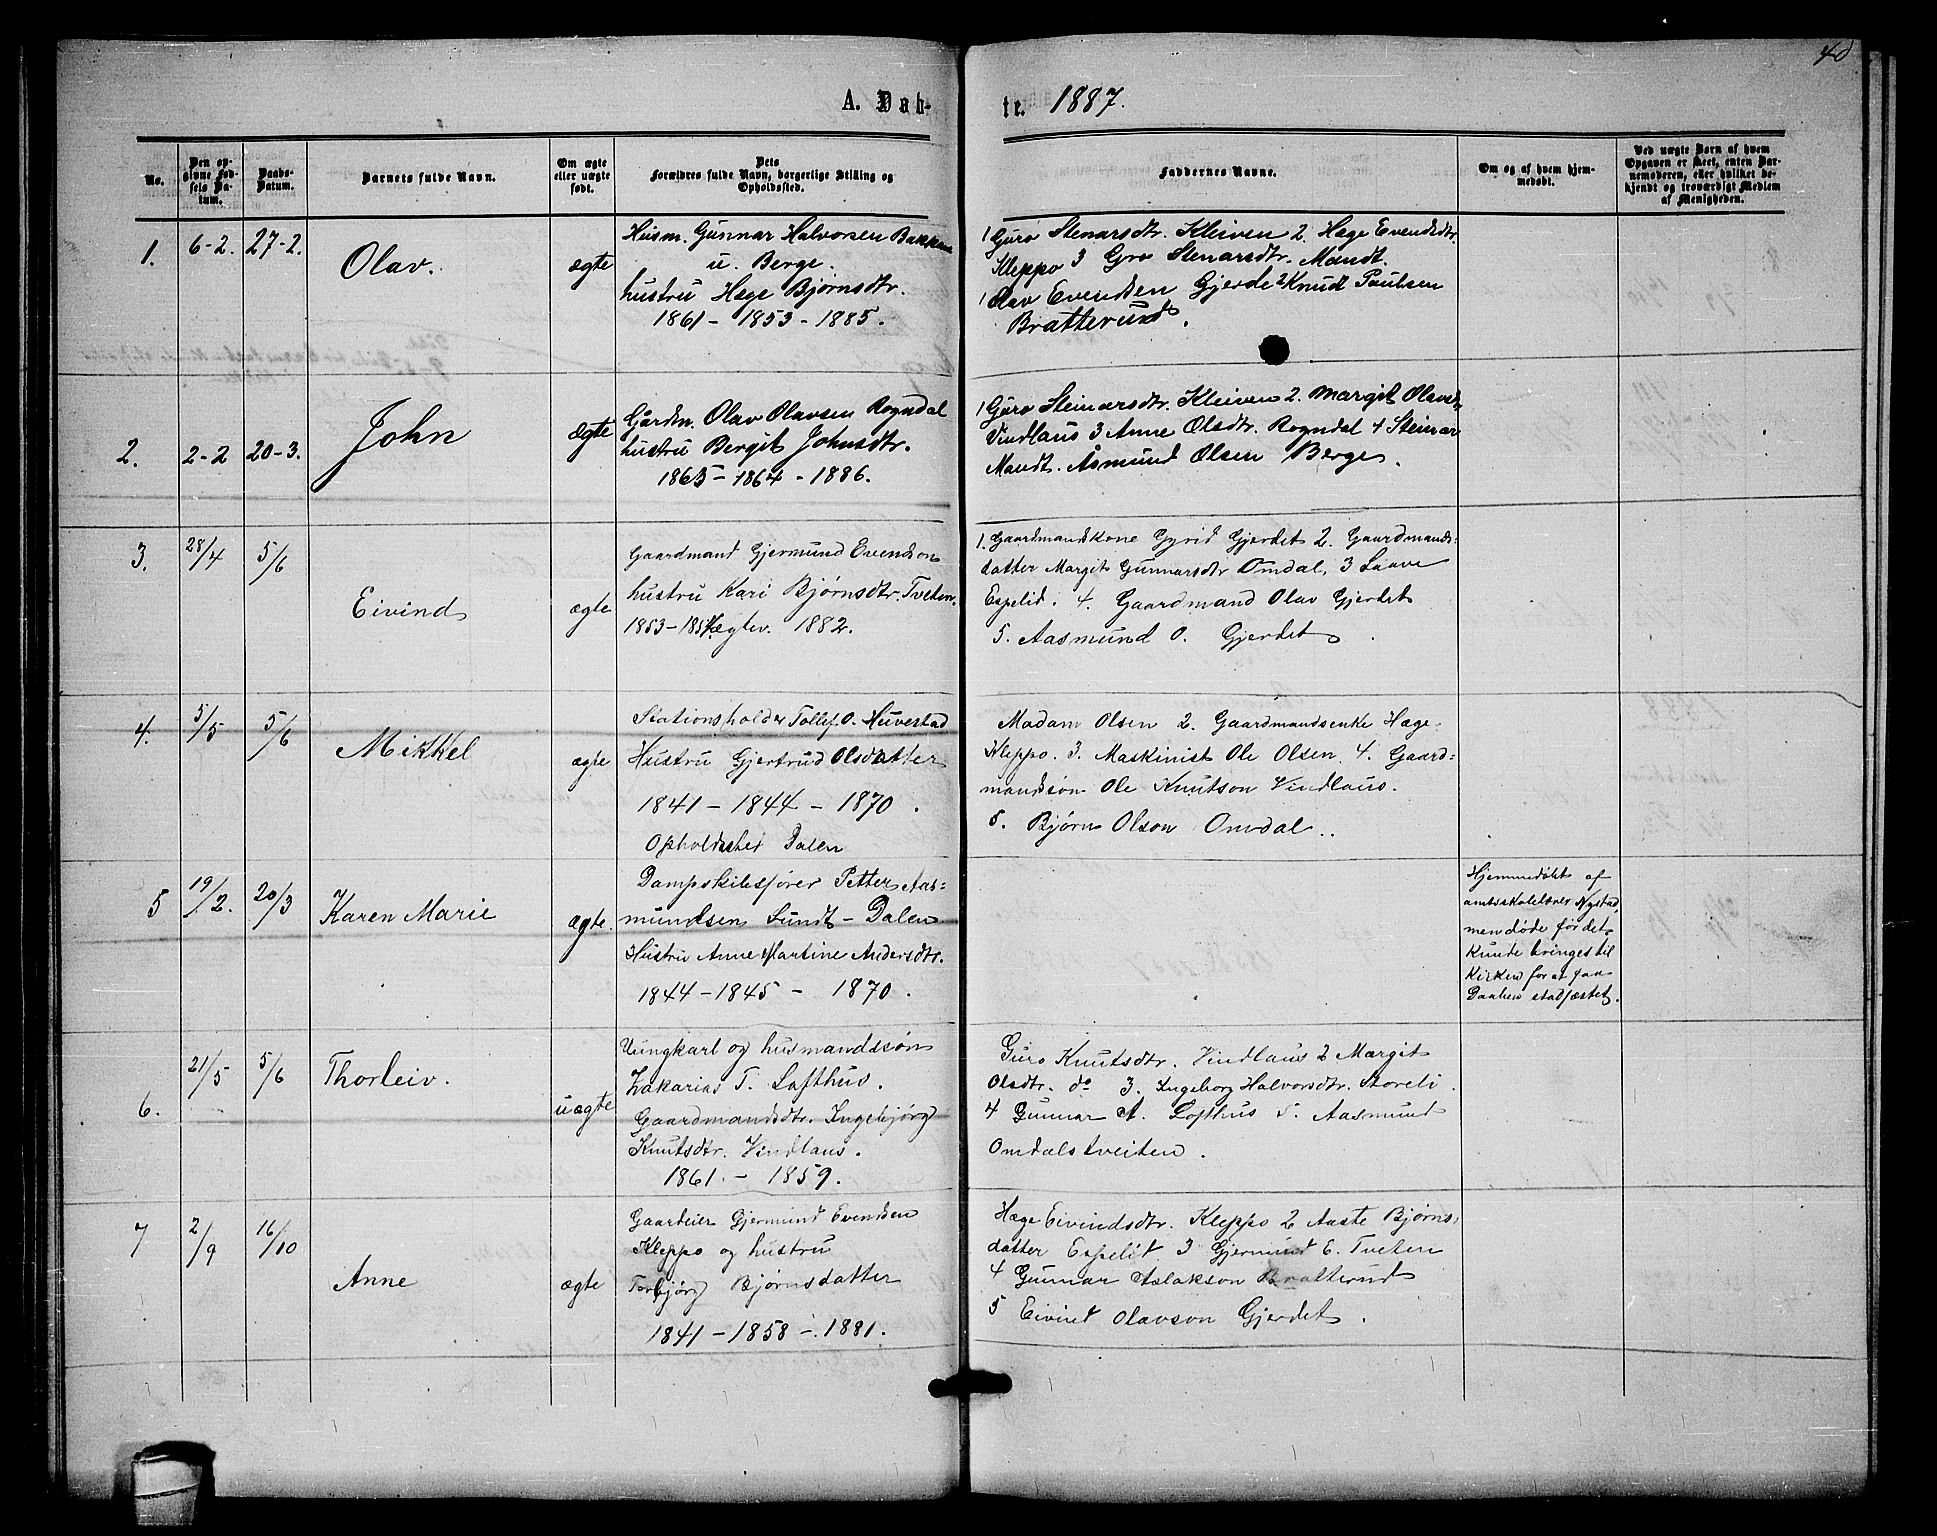 40
A. Døb-
te. 1887.
No.
Den op-
givne Fød-
sels Da-
tum.
Daabs-
Datum.
Barnets fulde Navn.
Om ægte
eller uægte
født.
Dets
Forældres fulde Navn, borgerlige Stilling og
Opholdssted.
Faddernes Navne.
Om og af hvem hjem-
medøbt.
Ved uægte Børn af hvem
Opgaven er skeet, enten Bar-
nemoderen, eller hvilket be-
kjendt og troværdigt Medlem
af Menigheden.
1.
6-2.
27-2.
Olav.
ægte
Husm. Gunnar Halvorsen Bakken
u. Berge.
hustru Hæge Bjørnsdtr.
1861 - 1853 - 1885.
1 Guro Stenarsdtr. Kleiven 2. Hæge Evendsdtr.
Kleppo 3 Gro Stenarsdtr. Mandt.
1 Olav Evendsen Gjerde 2 Knud Paulsen
Bratterund.
2.
2-2
20-3.
John
ægte
Gårdm. Olav Olavsen Rogndal
hustru Bergit Johnsdtr.
1863 - 1864 - 1886.
1 Guro Steinarsdtr. Kleiven 2. Margit Olavsd.
Vindlaus 3 Anne Olsdtr. Rogndal 4 Steinar
Mandt. Åsmund Olsen Berge.
3.
28/4
5/6
Eivind
ægte
Gaardmand Gjermund Evendson
hustru Kari Bjørnsdtr. Tveten.
1853 - 1857 ægtev. 1882.
1. Gaardmandskone Gyrid Gjerdet 2. Gaardmands-
datter Margit Gunnarsdtr Omdal, 3 Laave
Espelid. 4. Gaardmand Olav Gjerdet
5. Aasmund O. Gjerdet.
4.
5/5
5/6
Mikkel
ægte
Stationsholder Tollef O. Huvestad
Hustru Gjertrud Olsdatter
1841 - 1844 - 1870.
Opholdssted Dalen
Madam Olsen 2. Gaardmandsenke Hæge
Kleppo. 3. Maskinist Ole Olsen. 4. Gaard-
mandsøn Ole Knutson Vindlaus.
5. Bjørn Olson Omdal..
5
19/2.
20/3
Karen Marie
ægte.
Dampskibsfører Petter Aas-
mundsen Sundt - Dalen
Hustru Anne Martine Andersdtr.
1844 - 1845 - 1870.
Hjemmedøbt af
amtsskolelærer Nystad,
men døde før det
kunde bringes til
Kirken for at faa
Daaben stadfæstet.
6.
21/5
5/6
Thorleiv.
uægte
Ungkarl og husmandssøn
Zakarias T. Lofthus.
Gaardmandsdtr. Ingebjørg
Knutsdtr. Vindlaus.
1861. - 1859.
Guro Knutsdtr. Vindlaus 2 Margit
Olsdtr. do 3. Ingeborg Halvorsdtr. Storeli.
4 Gunnar A. Lofthus 5. Aasmund
Omdalstveiten.
7
2/9
16/10
Anne
ægte
Gaardeier Gjermund Evendsen
Kleppo og hustru
Torbjørg Bjørnsdatter
1841 - 1858 -. 1881.
Hæge Eivindsdtr. Kleppo 2 Aaste Bjørns-
datter Espelit 3 Gjermund E. Tveten
4 Gunnar Aslakson Bratterud
5 Eivind Olavson Gjerdet.